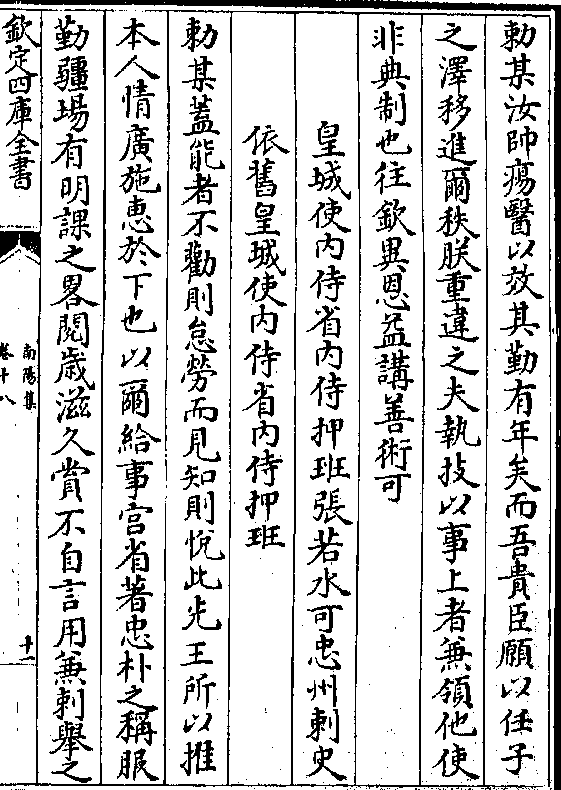 勅某汝帥瘍醫以效其勤有年矣而吾貴臣願以任子
之澤移進爾秩朕重違之夫執技以事上者兼領他使
非典制也往欽異恩益講善術可
皇城使内侍省内侍押班張若水可忠州刺史
依舊皇城使内侍省内侍押班
勅某葢能者不勸則怠勞而見知則悅此先王所以推
本人情廣施惠於下也以爾給事宫省著忠朴之稱服
勤疆埸有明課之畧閱歳滋久賞不自言用兼刺舉之
欽定四庫全書
南陽集
卷十八
十一